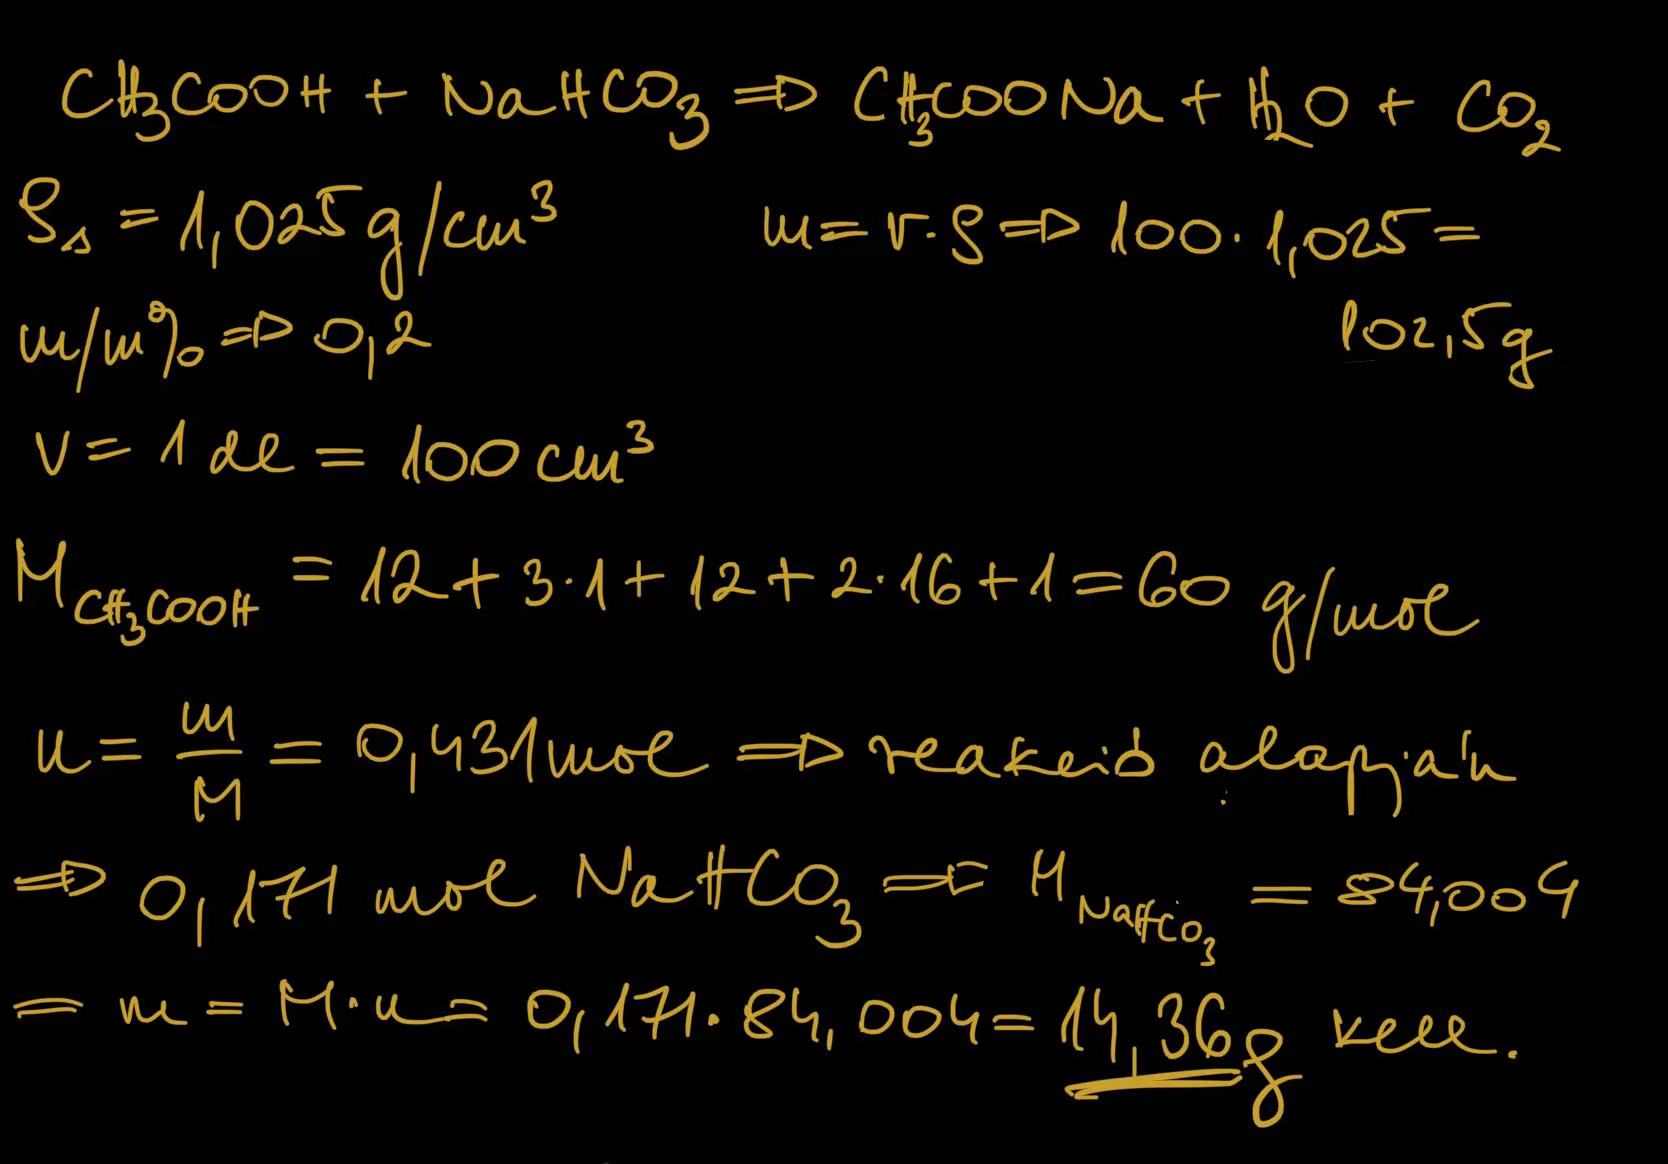 CH₃COOH + NaHCO₃ ⇒ CH₃COONa + H₂O + CO₂
ρₛ = 1,025 g/cm³ m = V · ρ ⇒ 100 · 1,025 =
102,5 g
m/m% ⇒ 0,2
V = 1 dl = 100 cm³
M CH₃COOH = 12 + 3 · 1 + 12 + 2 · 16 + 1 = 60 g/mol
n = m/M = 0,431 mol ⇒ reakció alapján
⇒ 0,171 mol NaHCO₃ ⇒ M NaHCO₃ = 84,004
= m = M · n = 0,171 · 84,004 = 14,36 g kell.